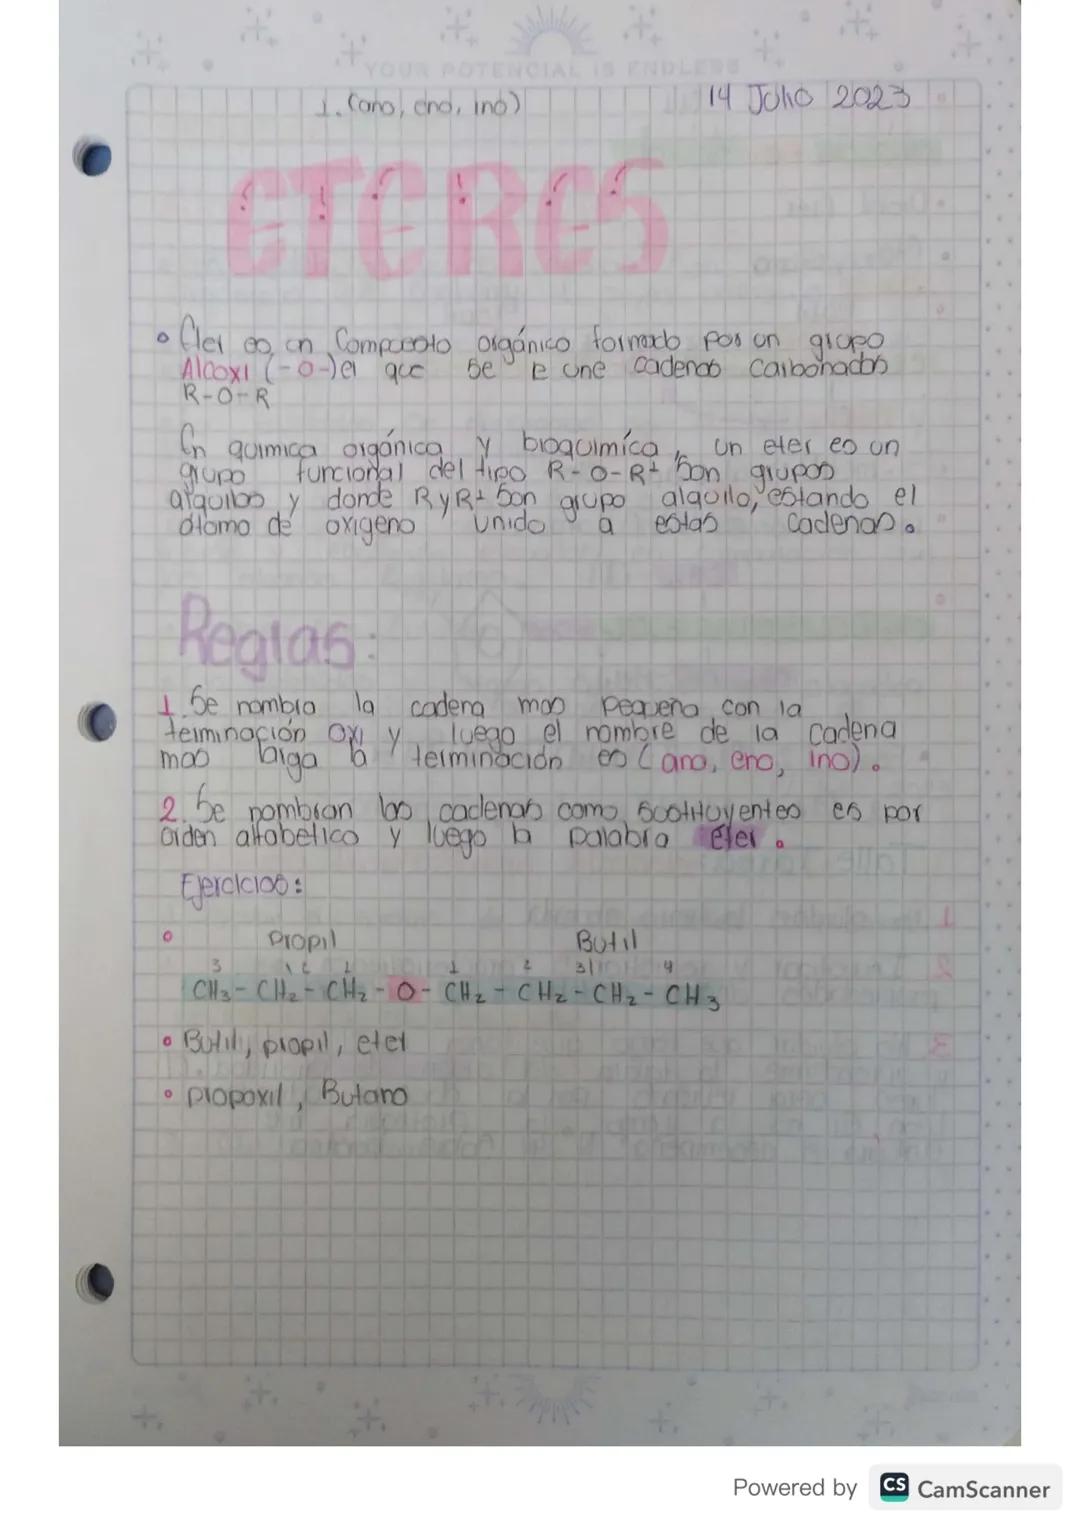 YOUR POTENCIAL IS ENDLESS
1. (ano, eno, ino)
14 Julio 2023
ETERES
Eter es un Compuesto orgánico formado por un grupo
Alcoxi (-O-) el que se une cadenas carbonados
R-O-R
En quimica orgánica y bioquímica, un eter es un
grupo funcional del tipo R-O-R1 son grupos
alquilos y donde R y R1 son grupo alquilo, estando el
átomo de oxigeno unido a estas cadenas.
Reglas:
1. Se nombra la cadena mas Pequeña con la
terminación oxi y luego el nombre de la cadena
mas larga la terminación es (ano, eno, ino).
2. Se nombran las cadenas como sustituyentes es por
orden alfabetico y luego la palabra éter.
Ejercicios:
Propil Butil
3 2 1 1 2 3 4
CH3-CH2-CH2-O-CH2-CH2-CH2-CH3
Butil, propil, eter
propoxil, Butano
Powered by CS CamScanner